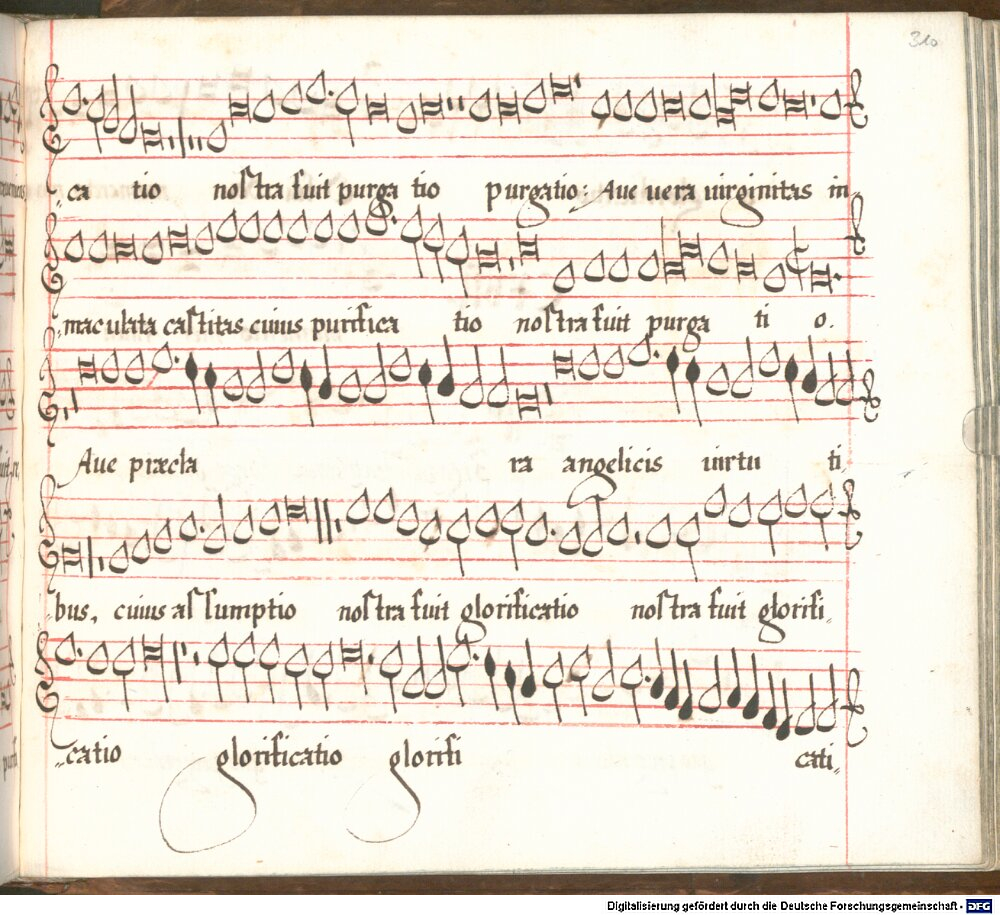 310
ca tio nostra fuit purga tio purgatio: Aue uera uirginitas in
maculata castitas cuius purifica tio nostra fuit purga ti o.
Aue præcla ra angelicis uirtu ti
bus, cuius assumptio nostra fuit glorificatio nostra fuit glorifi
catio glorificatio glorifi cati
Digitalisierung gefördert durch die Deutsche Forschungsgemeinschaft - DFG